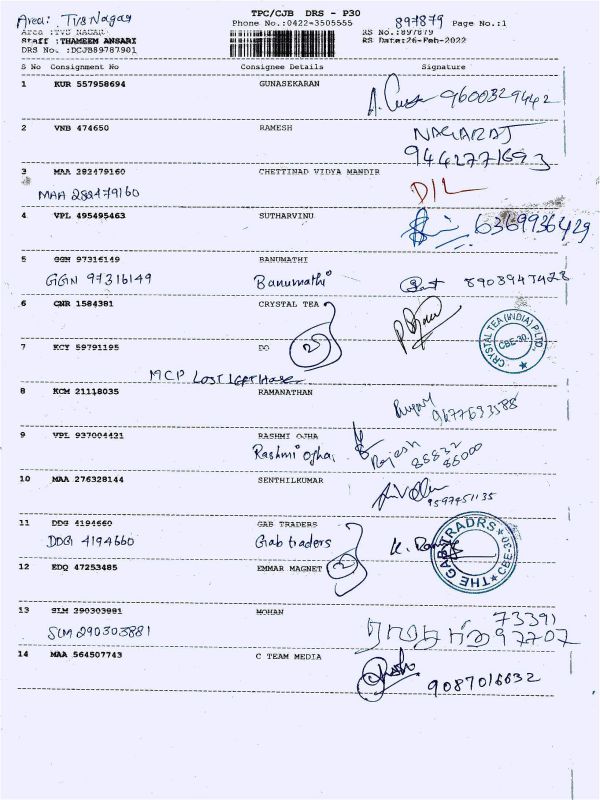 Area: Tvs Nagar
TPC/CJB DRS - P30
897879 Page No.:1
Area :TVS NAGAR
Phone No.:0422-3505555
RS No.:897879
Staff :THAMEEM ANSARI
RS Date:26-Feb-2022
DRS No. :DCJB89787901
S No Consignment No Consignee Details Signature
1 KUR 557958694 GUNASEKARAN
9600329442
2 VNB 474650 RAMESH NAGARAJ
9442771693
3 MAA 282479160 CHETTINAD VIDYA MANDIR
MAA 282479160 D/L
4 VPL 495495463 SUTHARVINU 6369936429
5 GGN 97316149 BANUMATHI
GGN 97316149 Banumathi
6 CNR 1584381 CRYSTAL TEA
CRYSTAL TEA (INDIA) P LTD.
CBE-30.
7 KCY 59791195 DO
MCP Lost
8 KCM 21118035 RAMANATHAN
9677693588
9 VPL 937004421 RASHMI OJHA
Rashmi ojha Rajesh
85832
85000
10 MAA 276328144 SENTHILKUMAR
9597451135
11 DDG 4194660 GAB TRADERS
DDG 4194660 Gab traders
THE GAB TRADRS
CBE-30
12 EDQ 47253485 EMMAR MAGNET
13 SLM 290303881 MOHAN 73391
SLM 290303881 97707
14 MAA 564507743 C TEAM MEDIA
9087016632